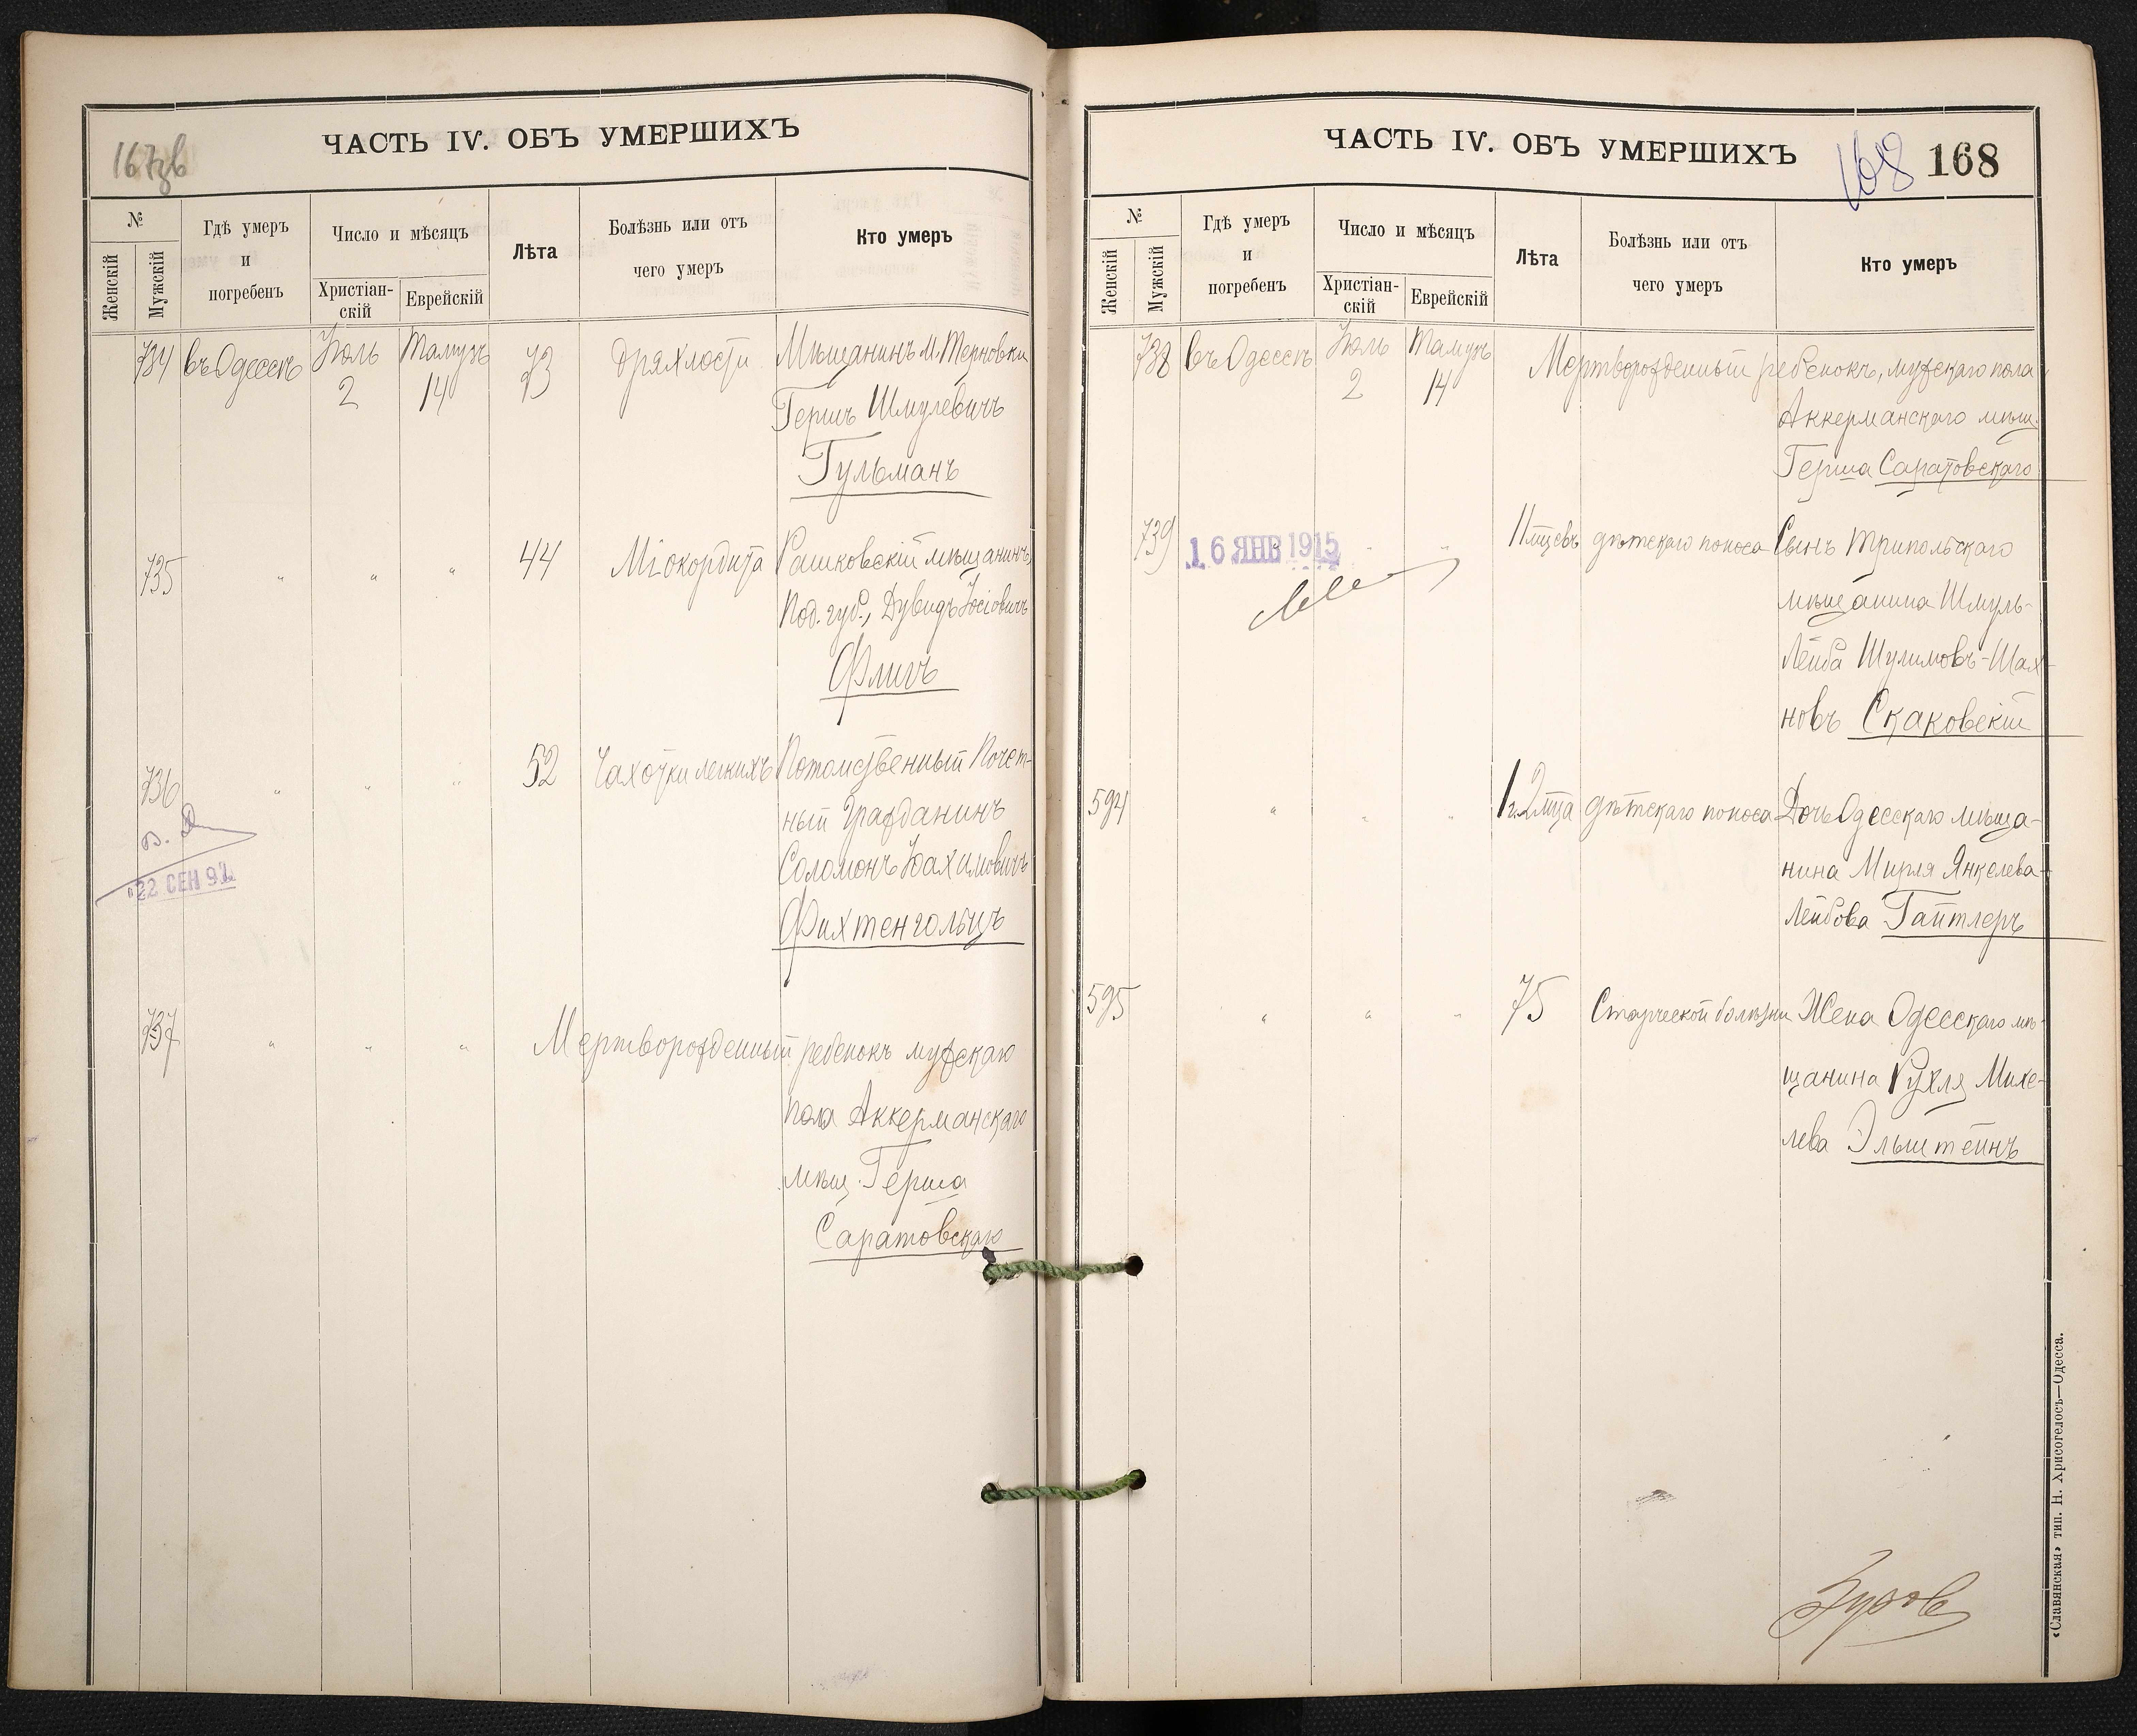 167зв
ЧАСТЬ IV. ОБЪ УМЕРШИХЪ
№
Женскій
Мужскій
Гдѣ умеръ
и
погребенъ
Число и мѣсяцъ
Христіан-
скій
Еврейскій
Лѣта
Болѣзнь или отъ
чего умеръ
Кто умеръ
734 въ Одессѣ Іюль Тамузъ 73 Дряхлости Мѣщанинъ м. Терновки
2 14 Гершъ Шмулевичъ
Гульманъ
735 " " " 44 Міокордита Рашковскій мѣщанинъ,
Под. губ., Дувидъ Іосіовичъ
Фличъ
736 " " " 52 Чахотки легкихъ Потомственный Почет-
ный Гражданинъ
Соломонъ Іоахимовичъ
Фихтенгольцъ
22 СЕН 97
737 " " " Мертворожденный ребенокъ мужскаго
пола Аккерманскаго
мѣщ. Герша
Саратовскаго
ЧАСТЬ IV. ОБЪ УМЕРШИХЪ
168 168
№
Женскій
Мужскій
Гдѣ умеръ
и
погребенъ
Число и мѣсяцъ
Христіан-
скій
Еврейскій
Лѣта
Болѣзнь или отъ
чего умеръ
Кто умеръ
738 въ Одессѣ Іюль Тамузъ Мертворожденный ребенокъ, мужскаго пола
2 14 Аккерманскаго мѣщ.
Герша Саратовскаго
739 16 ЯНВ 1915 " " 11 мцевъ дѣтскаго поноса Сынъ Трипольскаго
мѣщанина Шмуль-
Лейба Шулимовъ-Шах-
новъ Скаковскій
594 " " " 1 г. 2 мца дѣтскаго поноса Дочь Одесскаго мѣща-
нина Мирля Янкелева-
Лейбова Гайтлеръ
595 " " " 75 Старческой болѣзни Жена Одесскаго мѣ-
щанина Рухля Михе-
лева Эльштейнъ
«Славянская» тип. Н. Хрисогелосъ—Одесса.